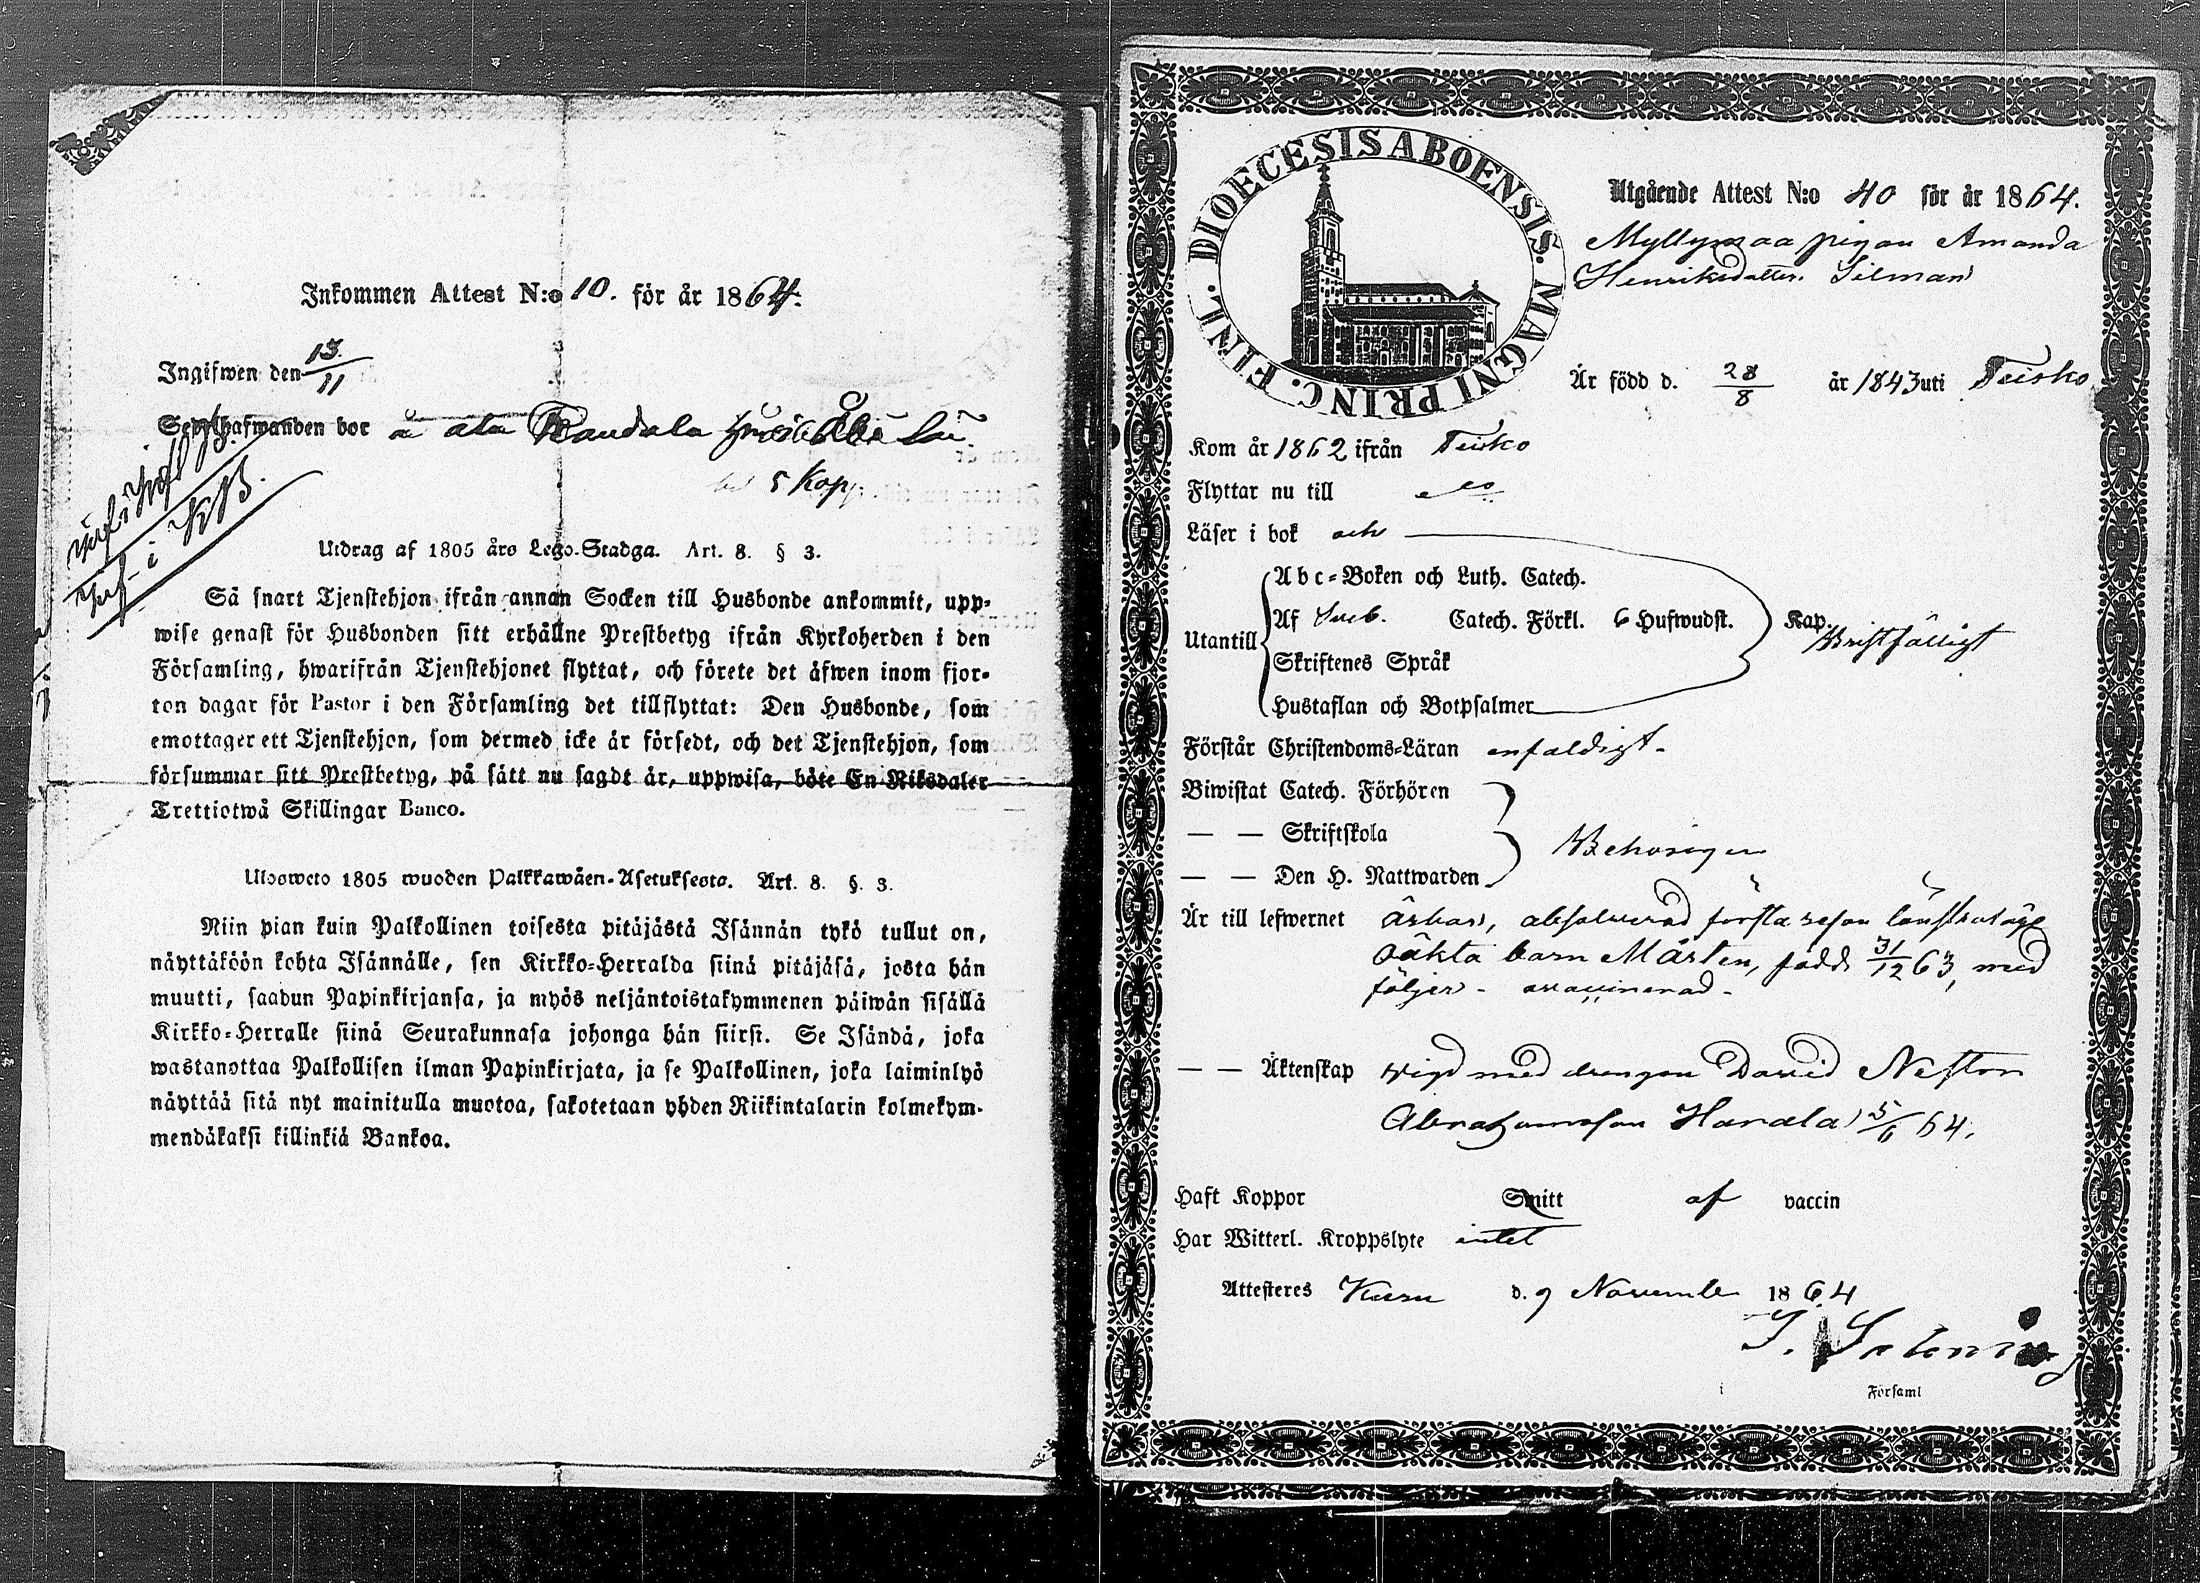 Inkommen Attest N:o 10. för år 1864.
Ingifwen den 13/11
bor
5 Kopp
Utdrag af 1805 års Lego-Stadga. Art. 8. § 3.
Så snart Tjenstehjon ifrån annan Socken till Husbonde ankommit, upp-
wise genast för Husbonden sitt erhållne Prestbetyg ifrån Kyrkoherden i den
Församling, hwarifrån Tjenstehjonet flyttat, och förete det äfwen inom fjor-
ton dagar för Pastor i den Församling det tillflyttat: Den Husbonde, som
emottager ett Tjenstehjon, som dermed icke är försedt, och det Tjenstehjon, som
försummar sitt Prestbetyg, på sätt nu sagdt är, uppwisa, böte En Riksdaler
Trettiotwå Skillingar Banco.
Ulosweto 1805 wuoden Palkkawäen-Asetuksesta. Art. 8. §. 3.
Niin pian kuin Palkollinen toisesta pitäjästä Isännän tykö tullut on,
näyttäköön kohta Isännälle, sen Kirkko-Herralda siinä pitäjäsä, josta hän
muutti, saadun Papinkirjansa, ja myös neljäntoistakymmenen päiwän sisällä
Kirkko-Herralle siinä Seurakunnasa johonga hän siirsi. Se Isändä, joka
wastanottaa Palkollisen ilman Papinkirjata, ja se Palkollinen, joka laiminlyö
näyttää sitä nyt mainitulla muotoa, sakotetaan yhden Riikintalarin kolmekym-
mendäkaksi killinkiä Bankoa.
DIOECESIS ABOENSIS. MAGNI PRINC. FINL.
Utgående Attest N:o 40 för år 1864.
Myllymaa pigan Amanda
Henriksdotter Silman
Är född d. 28/8 år 1843 uti Teisko
Kom år 1862 ifrån Teisko
Flyttar nu till
Läser i bok och
Abc-Boken och Luth. Catech.
Utantill Af Sveb. Catech. Förkl. 6 Hufwudst. Kap. Bristfälligt
Skriftenes Språk
Hustaflan och Botpsalmer
Förstår Christendoms-Läran enfaldigt.
Biwistat Catech. Förhören
— — Skriftskola Behörigen
— — Den H. Nattwarden
Är till lefwernet ärbar, absolverad första resan lönskaläge
oäkta barn Mårten, född 31/12 63, med
följer. vaccinerad.
— — Äktenskap vigd med drengen David Nestor
Abrahamsson Harala 5/6 64.
Haft Koppor Smitt af vaccin
Har Witterl. Kroppslyte intet
Attesteres Kuru d. 9 November 1864
i Församl